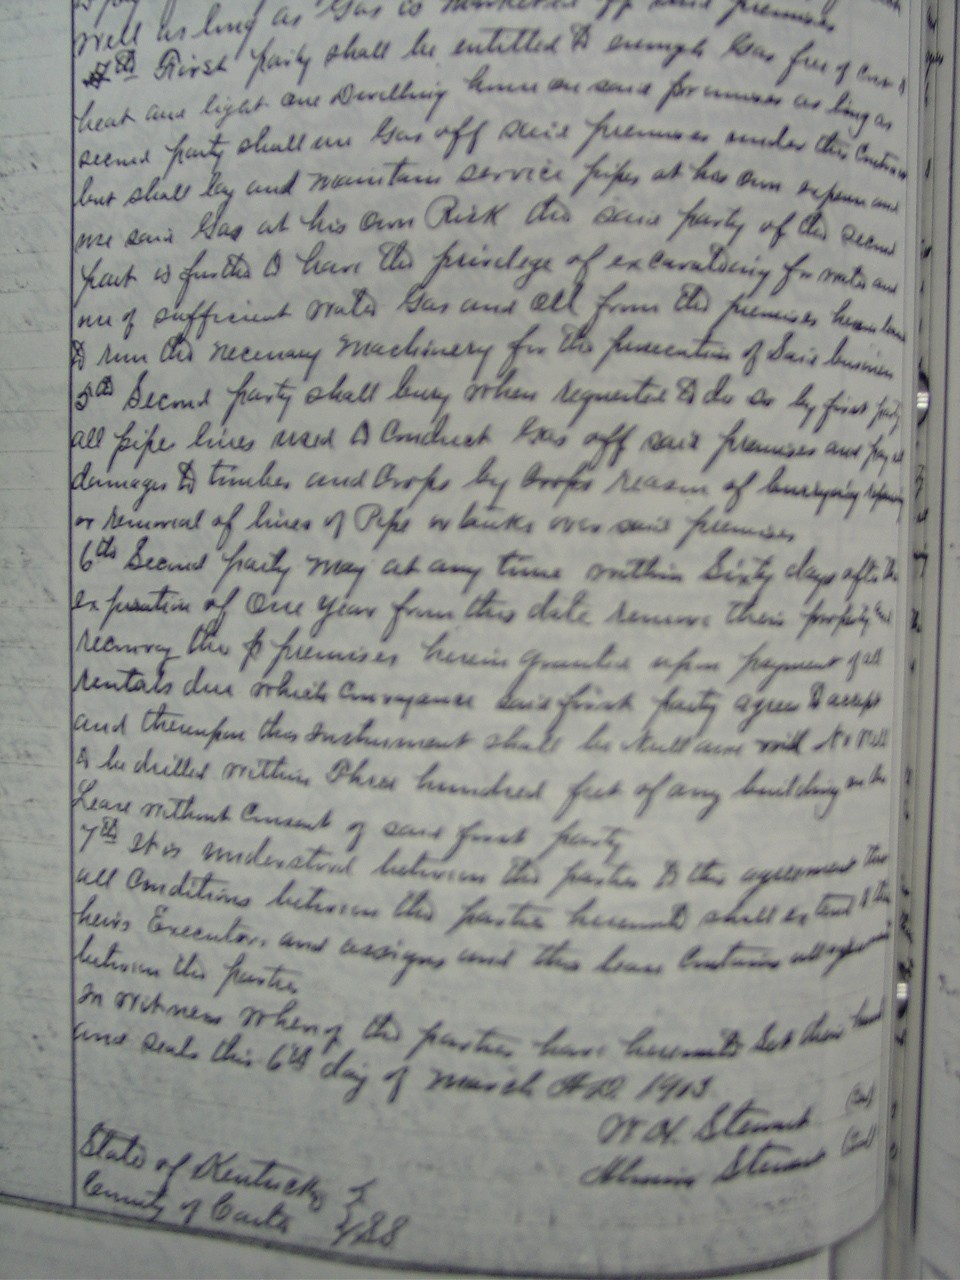 well as long as Gas is marketed off said premises
4th First party shall be entitled to enough Gas free of cost to
heat and light one Dwelling house on said premises as long as
second party shall use Gas off said premises under this Contract
but shall lay and maintain service pipes at his own expense and
use said Gas at his own Risk the said party of the second
part is further to have the privelege of excavationg for water and
use of sufficient water Gas and Oil from the premises herein
to run the necessary Machinery for the prosecution of Said business
5th Second party shall bury when requested to do so by first party
all pipe lines used to Conduct Gas off said premises and pay all
damages to timber and Crops by Crops reason of burrying
or removal of lines of Pipe or tanks over said premises
6th Second party may at any time within Sixty days after the
expiration of One year from this date remove their property and
reconvey the p premises herein granted upon payment of all
rentals due which Conveyance said first party agrees to accept
and thereupon this Instrument shall be Null and void No Well
to be drilled within Three hundred feet of any building on the
Lease without Consent of said first party
7th It is understood between the parties to this agreement that
all Conditions between the parties hereunto shall extend to their
heirs Executors and assigns and this lease Contains all agreements
between the parties
In witness whereof the parties have hereunto Set their hands
and seals this 6th day of March A.D. 1913.
W H. Stewart (Seal)
Stewart (Seal)
State of Kentucky
County of Carter SS